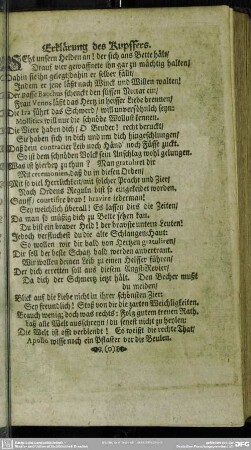 Erklärung des Kupffers.
Seht unsern Helden an! der sich ans Bette hält/
Drauf vier gewaffnete ihn gar zu mächtig halten/
Dahin sie ihn gelegt dahin er selber fällt/
Indem er jene läst nach Wünsch und Willen walten!
Der nasse Bacchus schenckt den süssen Nectar ein/
Frau Venus läst das Hertz in heisser Liebe brennen/
Die Ira führt das Schwerd/ will unversöhnlich seyn:
will nur die schnöde Wollust kennen.
Die Vater haben dich! O Bruder! recht berückt/
Sie haben sich in dich und in dich hingeschlungen/
Daß dein contracter Leib nach Händ' noch Füsse zuckt.
So ist dem schnöden Volck sein Anschlag wohl gelungen.
Was ist hierbey zu thun? Man gratuliert dir
Mit ceremonien daß du in diesen Orden/
Mit so viel Herrlichkeit/ mit solcher Pracht und Zier/
Nach Ordens Reguln bist so eingekleidet worden.
Sauff/ courtisire brav! bravire iederman!
Sey weichlich überal! Es lassen dies die Zeiten/
Da man so müßig dich zu Bette sehen kan.
Du bist ein braver Held! der bravste unter Leuten!
Jedoch verfluchest du die alte Schlangen-Haut:
So wollen wir dir bald von Hertzen gratuliren/
Dir soll der beste Schatz bald werden anvertraut.
Wir wollen deinen Leib zu einen Helffer führen/
Der dich erretten soll aus diesem Angst-Revier/
Da dich der Schmertz itzt hält. Den Becher must
du meiden/
Blick auf die Liebe nicht in ihrer schönsten Zier:
Sey freundlich! Stoß von dir die zarten Weichligkeiten.
Brauch wenig; doch was rechts: Folg gutem treuen Rath.
laß alle Welt ausschreyn/ du seyest nicht zu heylen:
Die Welt ist offt verblendt! Es weißt die rechte That/
Apollo wisse noch ein Pflaster vor die Beulen.
(o)